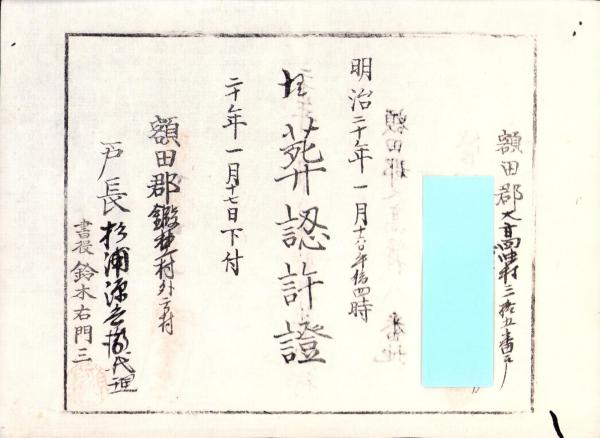 額田郡大高味村三拾五番戸
明治二十年一月十六日午后四時
埋葬認許證
二十年一月十七日下付
額田郡鍛埜村外三村
戸長杉浦源吉揚代理
書役鈴木右門三